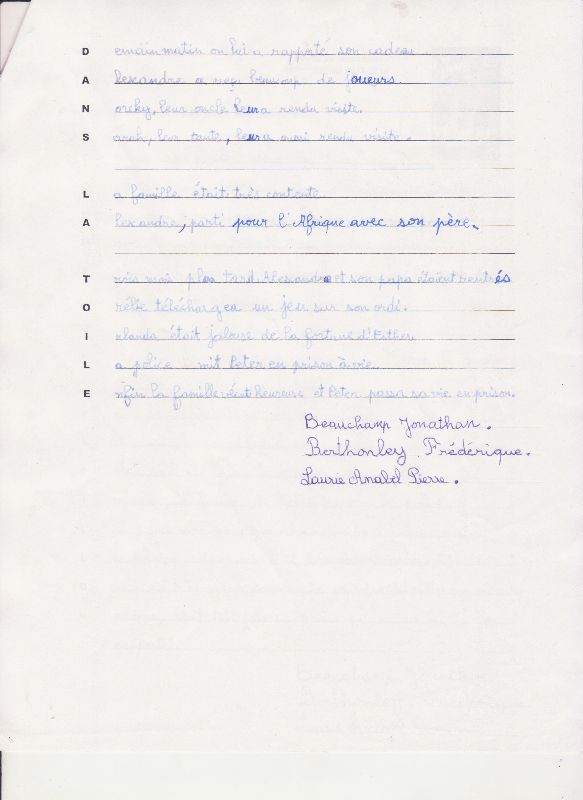 D emain matin on lui a rapporté son cadeau
A lexandre a reçu beaucoup de joueurs.
N orchy, leur oncle leura rendu visite.
S arah, leur tante, leura aussi rendu visite.
L a famille était très contente
A lexandre, parti pour l'Afrique avec son père.
T rois mois plus tard Alexandre et son papa étaient rentrés
O rélie téléchargea un jeu sur son ordi.
I olanda était jalouse de la fortune d'Esther
L a police mit Peter en prison à vie
E nfin la famille vécut heureuse et Peter passa sa vie en prison.
Beauchamp Jonathan.
Berthonley Frédérique.
Laurie Anabel Pierre.